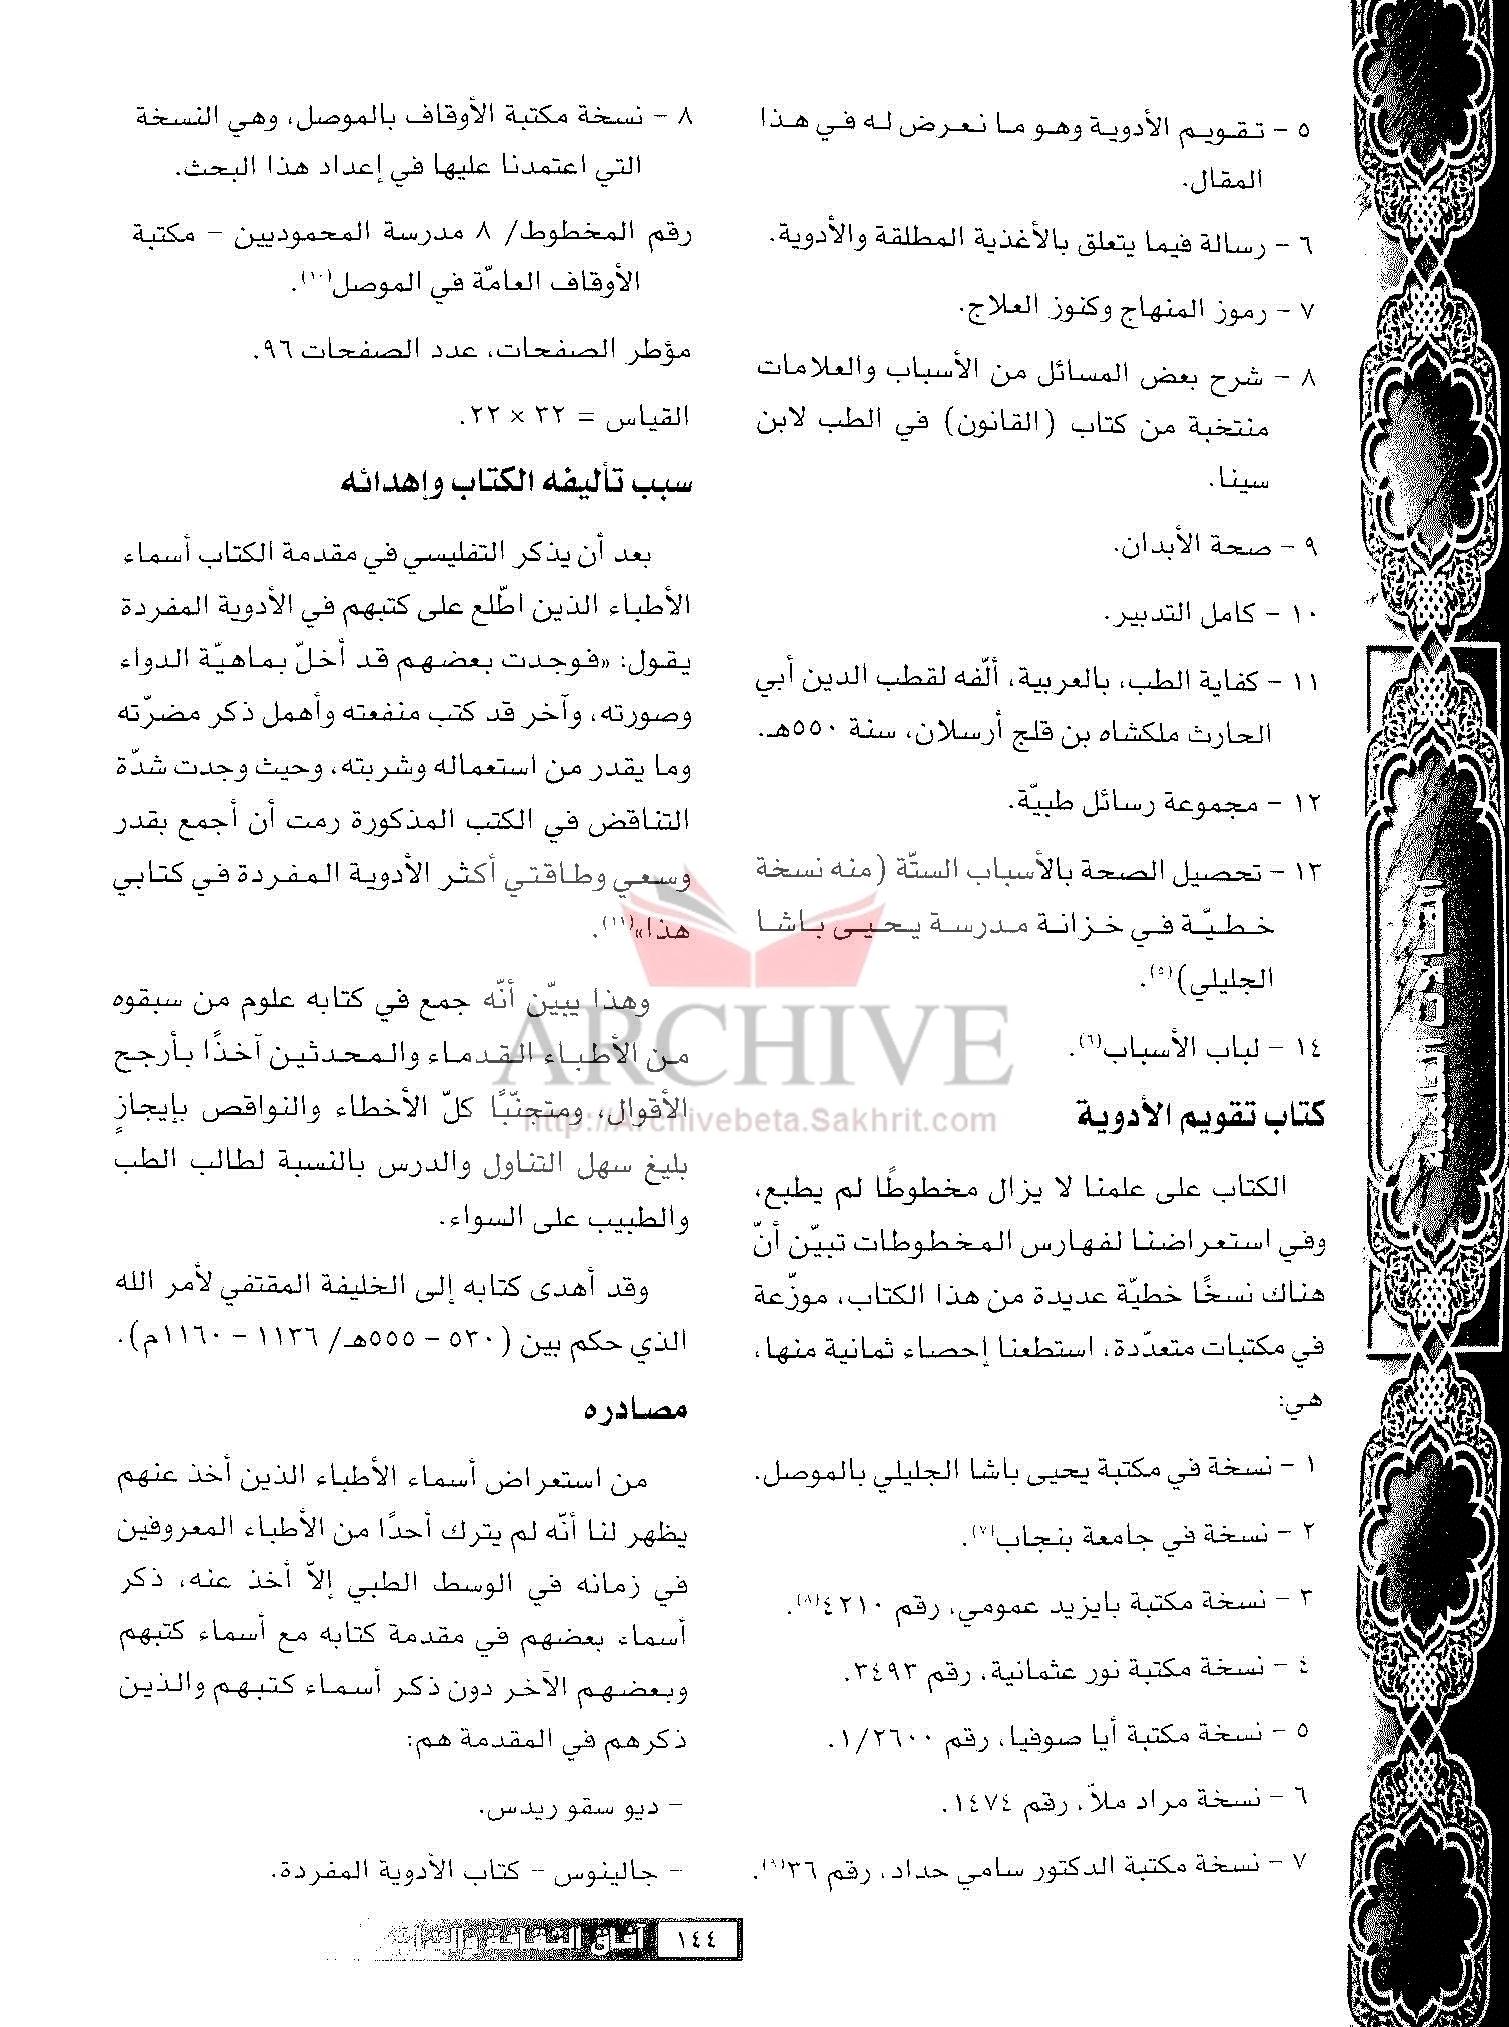 ٥ - تقويم الأدوية وهو ما نعرض له في هذا
المقال.
٦ - رسالة فيما يتعلق بالأغذية المطلقة والأدوية.
٧ - رموز المنهاج وكنوز العلاج.
٨ - شرح بعض المسائل من الأسباب والعلامات
منتخبة من كتاب (القانون) في الطب لابن
سينا.
٩ - صحة الأبدان.
١٠ - كامل التدبير.
١١ - كفاية الطب، بالعربية، ألّفه لقطب الدين أبي
الحارث ملكشاه بن قلج أرسلان، سنة ٥٥٠هـ.
١٢ - مجموعة رسائل طبيّة.
١٣ - تحصيل الصحة بالأسباب الستّة (منه نسخة
خطيّة في خزانة مدرسة يحيى باشا
الجليلي)(٥).
١٤ - لباب الأسباب(٦).
كتاب تقويم الأدوية
الكتاب على علمنا لا يزال مخطوطًا لم يطبع،
وفي استعراضنا لفهارس المخطوطات تبيّن أنّ
هناك نسخًا خطيّة عديدة من هذا الكتاب، موزّعة
في مكتبات متعدّدة، استطعنا إحصاء ثمانية منها،
هي:
١ - نسخة في مكتبة يحيى باشا الجليلي بالموصل.
٢ - نسخة في جامعة بنجاب(٧).
٣ - نسخة مكتبة بايزيد عمومي، رقم ٤٢١٠(٨).
٤ - نسخة مكتبة نور عثمانية، رقم ٣٤٩٣.
٥ - نسخة مكتبة أيا صوفيا، رقم ١/٢٦٠٠.
٦ - نسخة مراد ملاّ، رقم ١٤٧٤.
٧ - نسخة مكتبة الدكتور سامي حداد، رقم ٣٦(٩).
٨ - نسخة مكتبة الأوقاف بالموصل، وهي النسخة
التي اعتمدنا عليها في إعداد هذا البحث.
رقم المخطوط/ ٨ مدرسة المحموديين - مكتبة
الأوقاف العامّة في الموصل(١٠).
مؤطر الصفحات، عدد الصفحات ٩٦.
القياس = ٣٢ × ٢٢.
سبب تأليفه الكتاب وإهدائه
بعد أن يذكر التفليسي في مقدمة الكتاب أسماء
الأطباء الذين اطّلع على كتبهم في الأدوية المفردة
يقول: «فوجدت بعضهم قد أخلّ بماهيّة الدواء
وصورته، وآخر قد كتب منفعته وأهمل ذكر مضرّته
وما يقدر من استعماله وشربته، وحيث وجدت شدّة
التناقض في الكتب المذكورة رمت أن أجمع بقدر
وسعي وطاقتي أكثر الأدوية المفردة في كتابي
هذا»(١١).
وهذا يبيّن أنّه جمع في كتابه علوم من سبقوه
من الأطباء القدماء والمحدثين آخذًا بأرجح
الأقوال، ومتجنّبًا كلّ الأخطاء والنواقص بإيجازٍ
بليغ سهل التناول والدرس بالنسبة لطالب الطب
والطبيب على السواء.
وقد أهدى كتابه إلى الخليفة المقتفي لأمر الله
الذي حكم بين (٥٣٠ - ٥٥٥هـ/ ١١٣٦ - ١١٦٠م).
مصادره
من استعراض أسماء الأطباء الذين أخذ عنهم
يظهر لنا أنّه لم يترك أحدًا من الأطباء المعروفين
في زمانه في الوسط الطبي إلاّ أخذ عنه، ذكر
أسماء بعضهم في مقدمة كتابه مع أسماء كتبهم
وبعضهم الآخر دون ذكر أسماء كتبهم والذين
ذكرهم في المقدمة هم:
- ديو سقو ريدس.
- جالينوس - كتاب الأدوية المفردة.
ARCHIVE
http://Archivebeta.Sakhrit.com
١٤٤ آفاق الثقافة والتراث